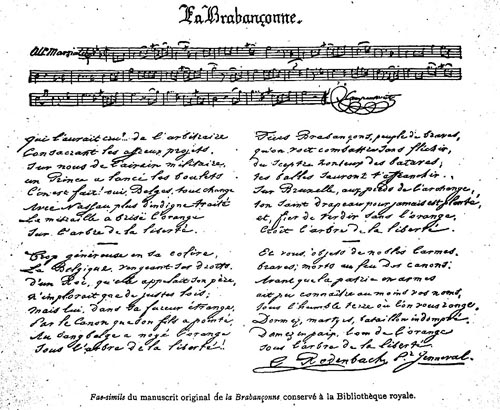 La Brabançonne.
All° Marziale
Campenhout
qui l'aurait cru... de l'arbitraire
Consacrant les affreux projets,
Sur nous de l'airain militaire,
un Prince a lancé les boulets.
C'en est fait! oui, Belges, tout change
Avec Nassau plus d'indigne traité
La mitraille a brisé l'orange
Sur l'arbre de la liberté.
Trop généreuse en sa colère,
La Belgique, vengeant ses droits,
d'un Roi, qu'elle appelait son père,
n'implorait que de justes lois;
Mais lui, dans sa fureur étrange,
Par le Canon que son fils a pointé,
Au sang belge a noyé l'orange
Sous l'arbre de la liberté!
Fiers Brabançons, peuple de braves,
qu'on voit combattre sans fléchir,
du Sceptre honteux des bataves;
tes balles sauront t'affranchir..
Sur Bruxelle, aux pieds de l'archange,
ton saint drapeau pour jamais est planté,
et, fier de verdir sans l'orange,
Croît l'arbre de la liberté.
Et vous, objets de nobles larmes,
braves, morts au feu des canons;
Avant que la patrie en armes
ait pu connaître au moins vos noms,
Sous l'humble terre où l'on vous range,
Dormez, martyrs, bataillon indompté,
Dormez en paix, loin de l'orange
Sous l'arbre de la liberté.
C. Rodenbach Jenneval
Fac-simile du manuscrit original de la Brabançonne conservé à la Bibliothèque royale.